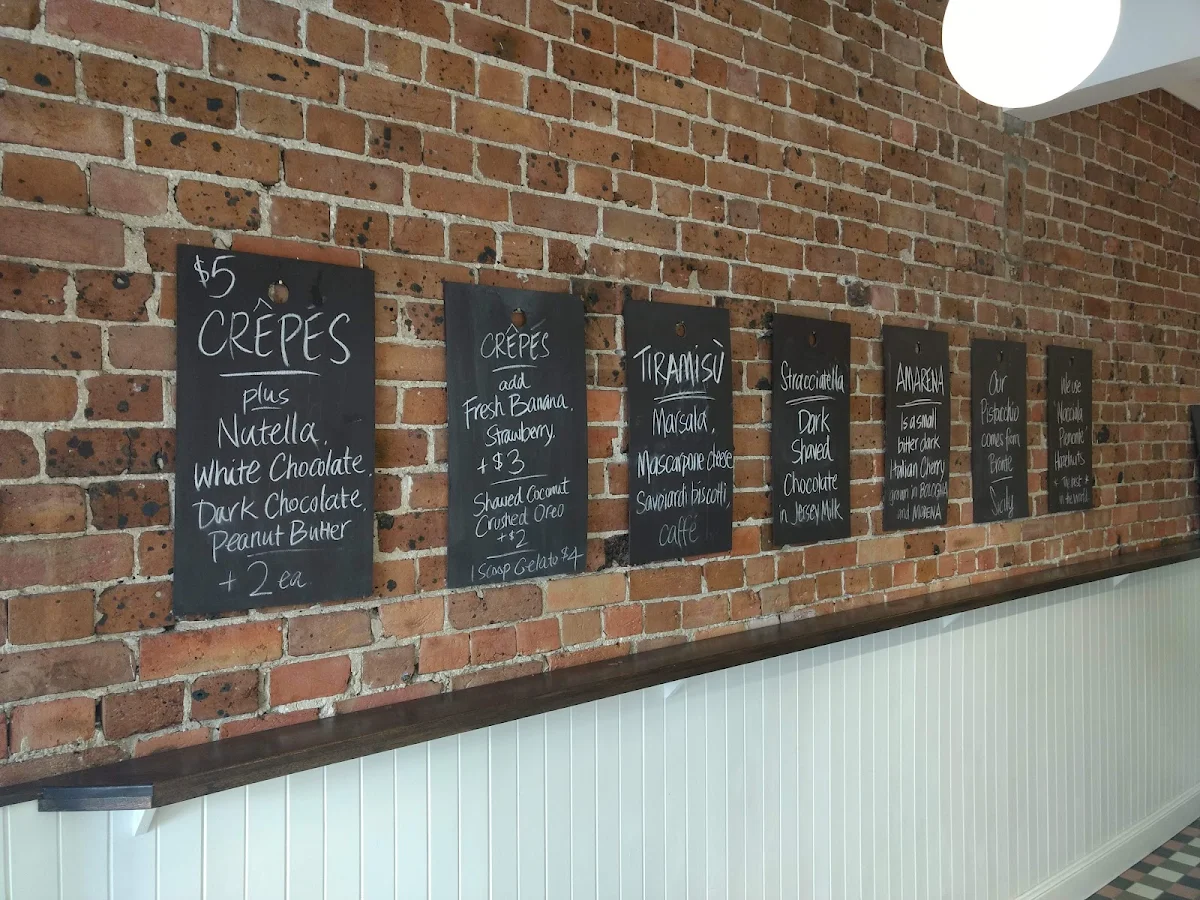 $5
CRÊPÉS
plus
Nutella,
White Chocolate,
Dark Chocolate,
Peanut Butter
+ 2 ea
CRÊPÉS
add
Fresh Banana,
Strawberry,
+ $3
Shaved Coconut
Crushed Oreo
+ $2
1 Scoop Gelato $4
TIRAMISÙ
Marsala,
Mascarpone cheese
Savoiardi biscotti,
caffé
Stracciatella
Dark
Shaved
Chocolate
in Jersey Milk
AMARENA
Is a small
bitter dark
Italian Cherry
grown in BOLOGNA
and MODENA
Our
Pistacchio
comes from
Bronte
Sicily
We use
Nocciola
Piemonte
Hazelnuts
The best
in the world